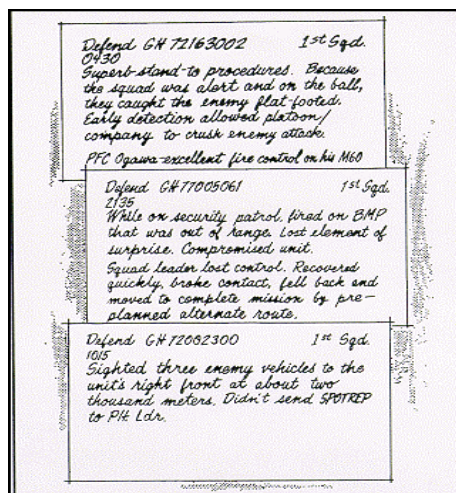 Defend GH 72163002 1st Sqd.
0430
Superb-stand-to procedures. Because
the squad was alert and on the ball,
they caught the enemy flat-footed.
Early detection allowed platoon/
company to crush enemy attack.
PFC Ogawa-excellent fire control on his M60
Defend GH77005061 1st Sqd.
2135
While on security patrol, fired on BMP
that was out of range. Lost element of
surprise. Compromised unit.
Squad leader lost control. Recovered
quickly, broke contact, fell back and
moved to complete mission by pre-
planned alternate route.
Defend GH72002300 1st Sqd.
1015
Sighted three enemy vehicles to the
unit's right front at about two
thousand meters. Didn't send SPOTREP
to Plt Ldr.